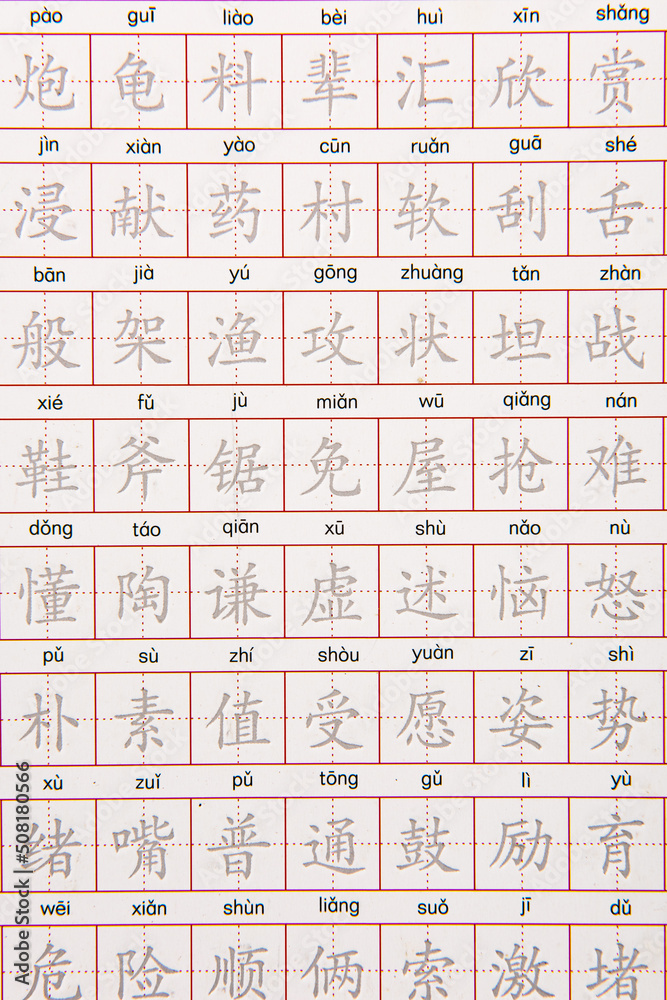 pào guī liào bèi huì xīn shǎng
炮 龟 料 辈 汇 欣 赏
jìn xiàn yào cūn ruǎn guā shé
浸 献 药 村 软 刮 舌
bān jià yú gōng zhuàng tǎn zhàn
般 架 渔 攻 状 坦 战
xié fǔ jù miǎn wū qiǎng nán
鞋 斧 锯 免 屋 抢 难
dǒng táo qiān xū shù nǎo nù
懂 陶 谦 虚 述 恼 怒
pǔ sù zhí shòu yuàn zī shì
朴 素 值 受 愿 姿 势
xù zuǐ pǔ tōng gǔ lì yù
绪 嘴 普 通 鼓 励 育
wēi xiǎn shùn liǎng suǒ jī dǔ
危 险 顺 俩 索 激 堵
Adobe Stock | #508180566